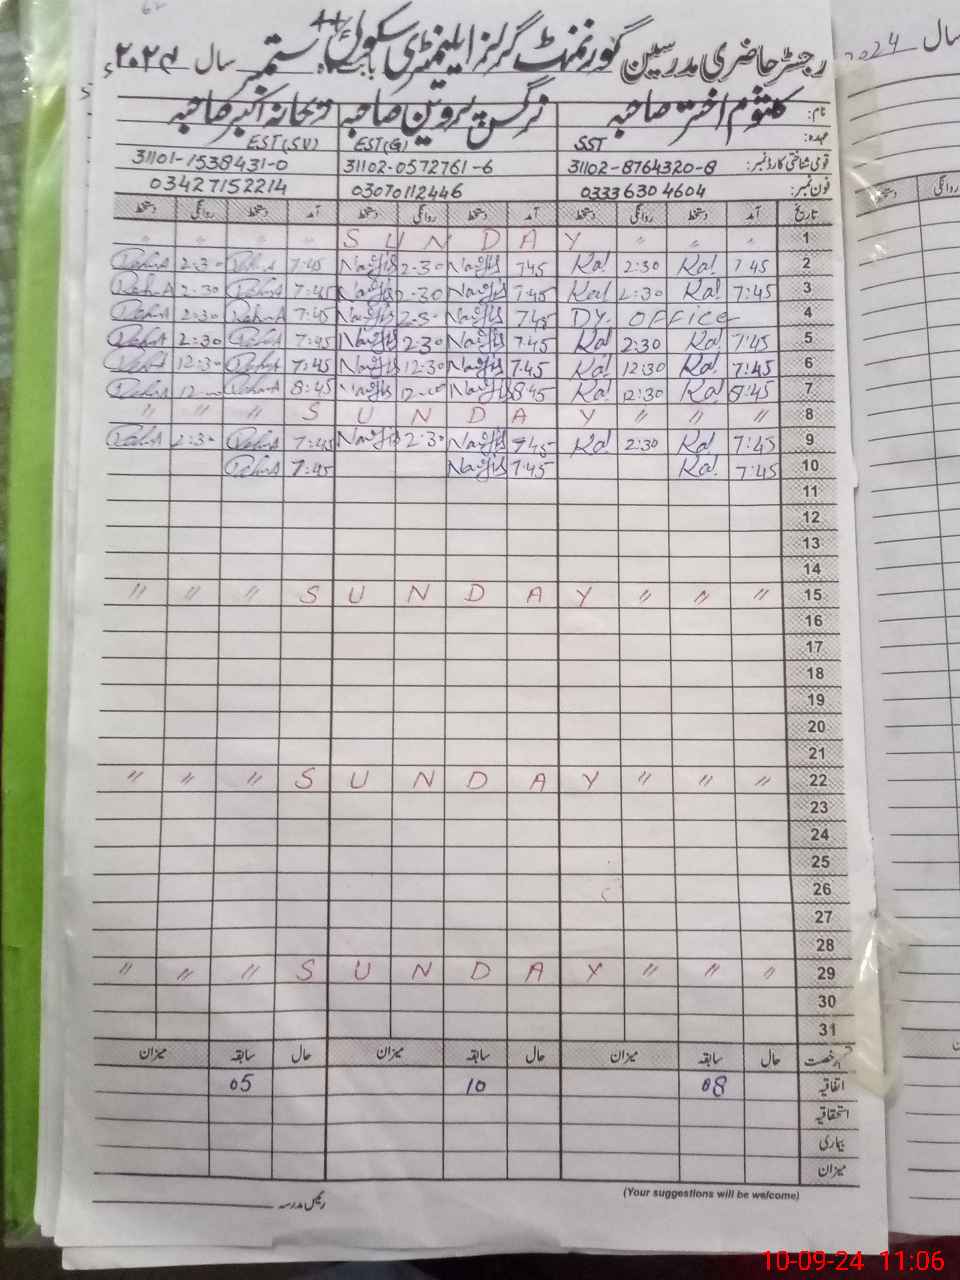 رجسٹر حاضری مدرسین گورنمنٹ گرلز ایلیمنٹری سکول بابت ماہ ستمبر سال ۲۰۲۴ء
نام: کلثوم اختر صاحبہ نرگس پروین صاحبہ ریحانہ اکبر صاحبہ
عہدہ: SST EST(G) EST(SV)
قومی شناختی کارڈ نمبر: 31102-8764320-8 31102-0572761-6 31101-1538431-0
فون نمبر: 03336304604 03070112446 03427152214
تاریخ آمد دستخط روانگی دستخط آمد دستخط روانگی دستخط آمد دستخط روانگی دستخط
1 " " " S U N D A Y " " " "
2 7 45 Kal 2:30 Kal 7 45 Nargis 2-30 Nargis 7:45 2:30
3 7:45 Kal 2:30 Kal 7:45 Nargis 2-30 Nargis 7:45 2:30
4 DY. OFFICE 7 45 Nargis 2-30 Nargis 7:45 2:30
5 7:45 Kal 2:30 Kal 7:45 Nargis 2-30 Nargis 7:45 2:30
6 7:45 Kal 12:30 Kal 7:45 Nargis 12-30 Nargis 7:45 12:30
7 8:45 Kal 12:30 Kal 8:45 Nargis Nargis 8:45
8 " " " S U N D A Y " " "
9 7:45 Kal 2:30 Kal 7:45 Nargis 2-30 Nargis 7:45 2:30
10 7:45 Kal 7:45 Nargis 7:45
11
12
13
14
15 " " " S U N D A Y " " "
16
17
18
19
20
21
22 " " " S U N D A Y " " "
23
24
25
26
27
28
29 " " " S U N D A Y " " "
30
31
رخصت حال سابقہ میزان حال سابقہ میزان حال سابقہ میزان
اتفاقیہ 08 10 05
استحقاقیہ
بیماری
میزان
(Your suggestions will be welcome)
رئیس مدرسہ
سال 2024
روانگی
10-09-24 11:06